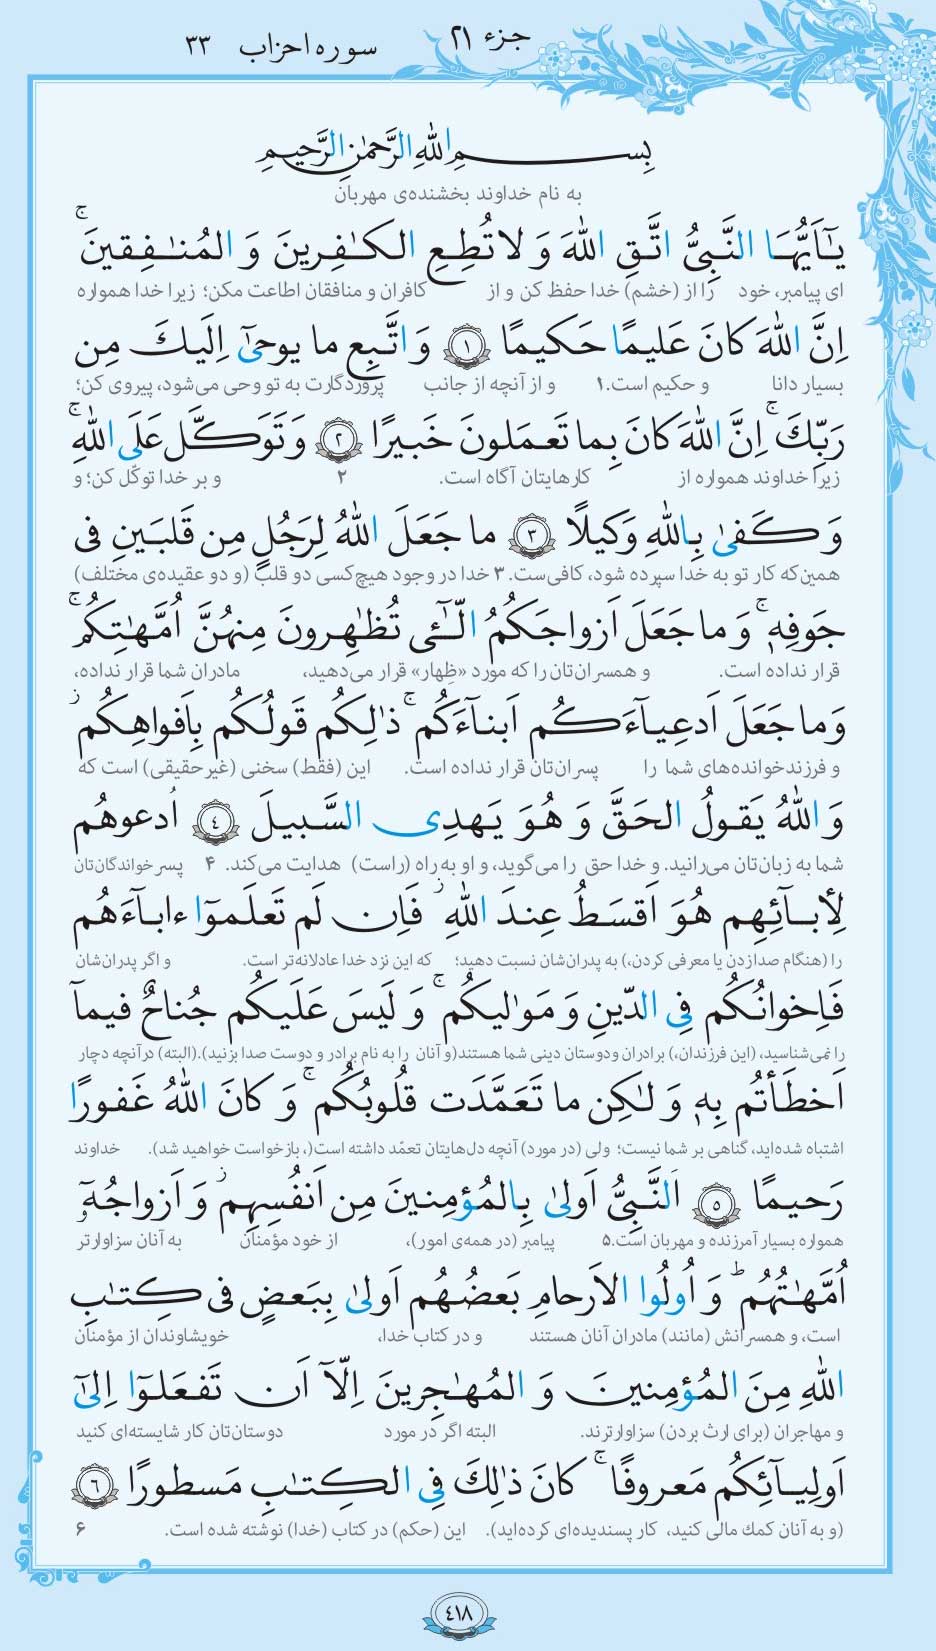 جزء ٢١
سوره احزاب ٣٣
بِسمِ اللّٰهِ الرَّحمٰنِ الرَّحیمِ
به نام خداوند بخشنده‌ی مهربان
یٰٓاَیُّهَا النَّبِیُّ اتَّقِ اللّٰهَ وَ لا تُطِعِ الکٰفِرینَ وَ المُنٰفِقینَ ۚ
ای پیامبر، خود را از (خشم) خدا حفظ کن و از کافران و منافقان اطاعت مکن؛ زیرا خدا همواره
اِنَّ اللّٰهَ کانَ عَلیمًا حَکیمًا ﴿١﴾ وَ اتَّبِع ما یوحیٰٓ اِلَیكَ مِن
بسیار دانا و حکیم است.۱ و از آنچه از جانب پروردگارت به تو وحی می‌شود، پیروی کن؛
رَبِّكَ ۚ اِنَّ اللّٰهَ کانَ بِما تَعمَلونَ خَبیرًا ﴿٢﴾ وَ تَوَکَّل عَلَی اللّٰهِ ۚ
زیرا خداوند همواره از کارهایتان آگاه است. ۲ و بر خدا توکّل کن؛ و
وَ کَفیٰ بِاللّٰهِ وَکیلًا ﴿٣﴾ ما جَعَلَ اللّٰهُ لِرَجُلٍ مِن قَلبَینِ فی
همین‌که کار تو به خدا سپرده شود، کافی‌ست. ۳ خدا در وجود هیچ‌کسی دو قلب (و دو عقیده‌ی مختلف)
جَوفِهٖ ۚ وَ ما جَعَلَ اَزواجَکُمُ الّٰٓـٔی تُظٰهِرونَ مِنهُنَّ اُمَّهٰتِکُم ۚ
قرار نداده است. و همسران‌تان را که مورد «ظِهار» قرار می‌دهید، مادران شما قرار نداده،
وَ ما جَعَلَ اَدعِیآءَکُم اَبنآءَکُم ۚ ذٰلِکُم قَولُکُم بِاَفواهِکُم ۖ
و فرزندخوانده‌های شما را پسران‌تان قرار نداده است. این (فقط) سخنی (غیرحقیقی) است که
وَ اللّٰهُ یَقولُ الحَقَّ وَ هُوَ یَهدِی السَّبیلَ ﴿٤﴾ اُدعوهُم
شما به زبان‌تان می‌رانید. و خدا حق را می‌گوید، و او به راه (راست) هدایت می‌کند. ۴ پسرخواندگان‌تان
لِأبـآئِهِم هُوَ اَقسَطُ عِندَ اللّٰهِ ۚ فَاِن لَم تَعلَموٓا ءابآءَهُم
را (هنگام صدازدن یا معرفی کردن،) به پدران‌شان نسبت دهید؛ که این نزد خدا عادلانه‌تر است. و اگر پدران‌شان
فَاِخوانُکُم فِی الدّینِ وَ مَوٰلیکُم ۚ وَ لَیسَ عَلَیکُم جُناحٌ فیمآ
را نمی‌شناسید، (این فرزندان،) برادران ودوستان دینی شما هستند(و آنان را به نام برادر و دوست صدا بزنید).(البته) درآنچه دچار
اَخطَأتُم بِهٖ وَ لٰکِن ما تَعَمَّدَت قُلوبُکُم ۚ وَ کانَ اللّٰهُ غَفورًا
اشتباه شده‌اید، گناهی بر شما نیست؛ ولی (در مورد) آنچه دل‌هایتان تعمّد داشته است(، بازخواست خواهید شد). خداوند
رَحیمًا ﴿٥﴾ اَلنَّبِیُّ اَولیٰ بِالمُؤمِنینَ مِن اَنفُسِهِم ۖ وَ اَزواجُهٗٓ
همواره بسیار آمرزنده و مهربان است.۵ پیامبر (در همه‌ی امور)، از خود مؤمنان به آنان سزاوارتر
اُمَّهٰتُهُم ۗ وَ اُولُوا الاَرحامِ بَعضُهُم اَولیٰ بِبَعضٍ فی کِتٰبِ
است، و همسرانش (مانند) مادران آنان هستند و در کتاب خدا، خویشاوندان از مؤمنان
اللّٰهِ مِنَ المُؤمِنینَ وَ المُهٰجِرینَ اِلّآ اَن تَفعَلوٓا اِلیٰٓ
و مهاجران (برای ارث بردن) سزاوارترند. البته اگر در مورد دوستان‌تان کار شایسته‌ای کنید
اَولِیـآئِکُم مَعروفًا ۚ کانَ ذٰلِكَ فِی الکِتٰبِ مَسطورًا ﴿٦﴾
(و به آنان کمك مالی کنید، کار پسندیده‌ای کرده‌اید). این (حکم) در کتاب (خدا) نوشته شده است. ۶
٤١٨